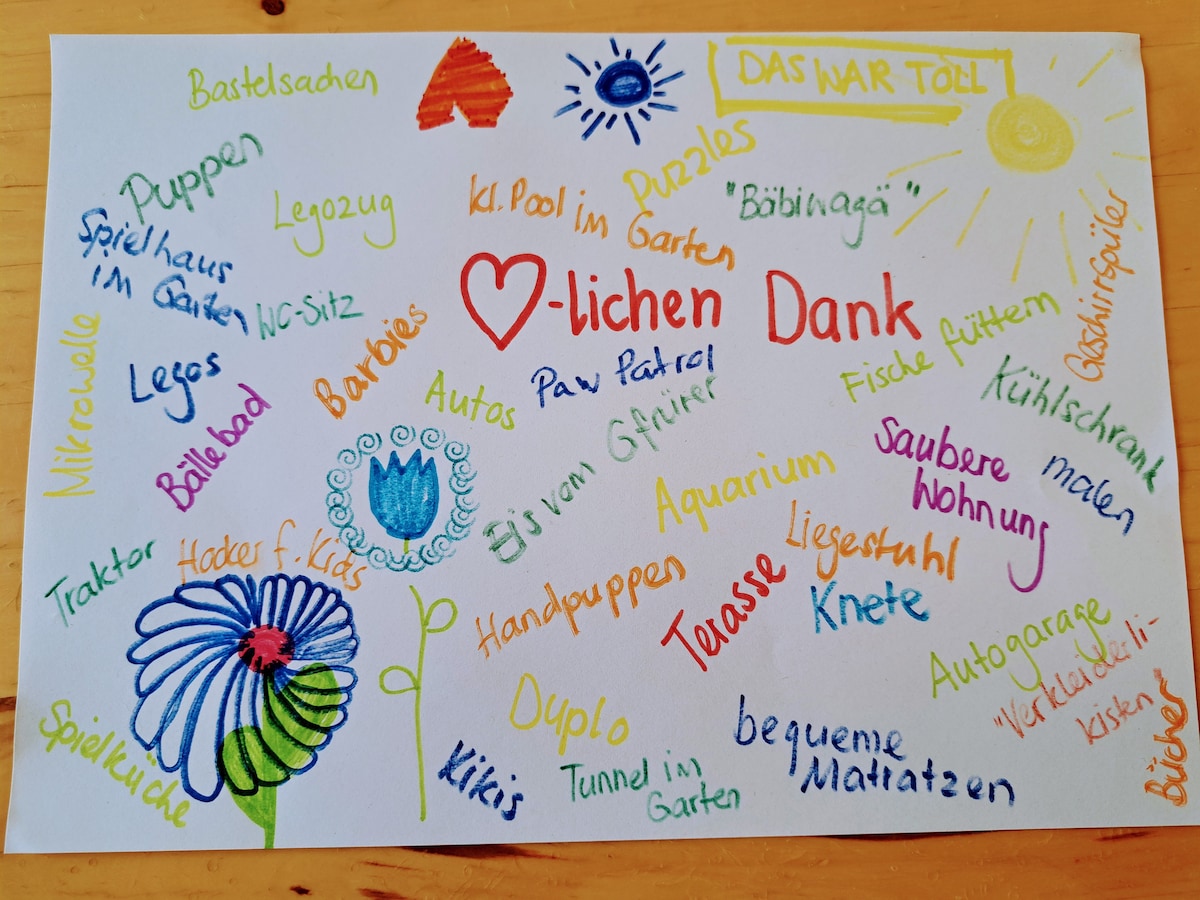 Bastelsachen
DAS WAR TOLL
Puppen
Puzzles
Legozug
kl. Pool im Garten
"Bäbiwagä"
Spielhaus
im Garten
WC-Sitz
♡-lichen Dank
Geschirrspüler
Mikrowelle
Legos
Barbies
Autos
Paw Patrol
Fische füttern
Kühlschrank
Bällebad
Eis vom Gfrürer
Aquarium
Saubere
Wohnung
malen
Traktor
Hocker f. Kids
Handpuppen
Terasse
Liegestuhl
Knete
Autogarage
"Verkleiderli-
kisten"
Bücher
Spielküche
Duplo
Kikis
Tunnel im
Garten
bequeme
Matratzen